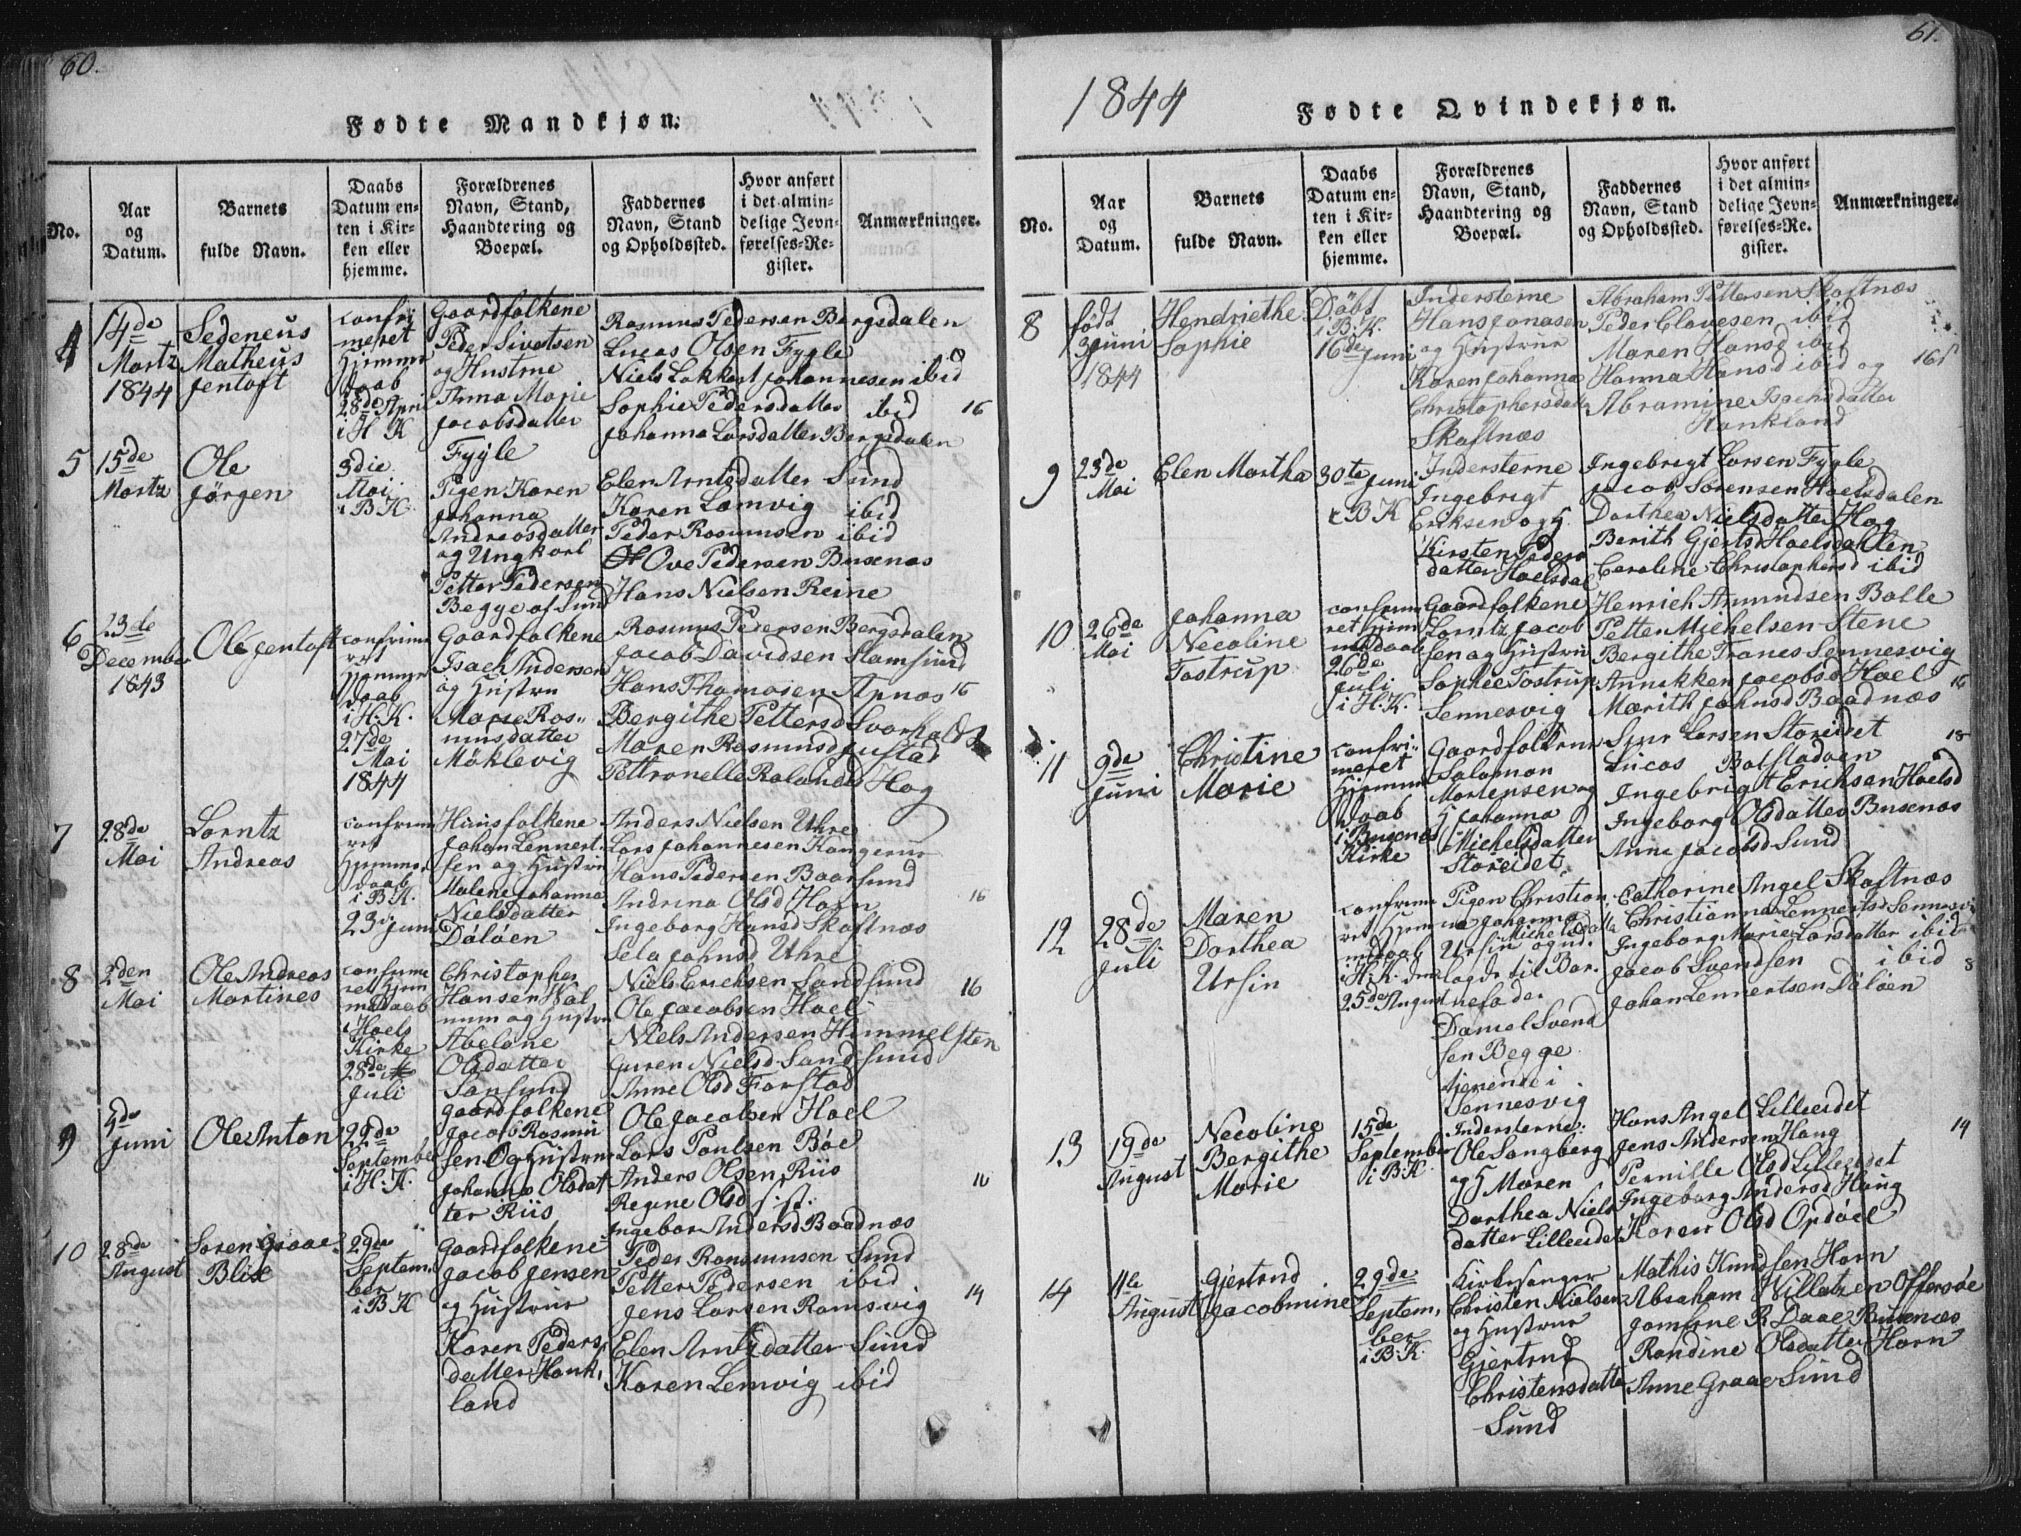 60.
Fødte Mandkjøn.
No.
Aar
og
Datum.
Barnets
fulde Navn.
Daabs
Datum en-
ten i Kir-
ken eller
hjemme.
Forældrenes
Navn, Stand,
Haandtering og
Boepæl.
Faddernes
Navn, Stand
og Opholdssted.
Hvor anført
i det almin-
delige Jevn-
førelses-Re-
gister.
Anmærkninger.
4
14de
Martz
1844
Sedeneus
Matheus
Jentoft
confir
meret
Hjemme
Daab
28de April
i H. K
Gaardfolkene
Peder Sivertsen
og Hustrue
Anna Marie
Jacobsdatter
Fygle
Rasmus Pedersen Bergsdalen
Lucas Olsen Fygle
Niels Lokkert Johannesen ibid
Sophie Pedersdatter ibid
Johanna Larsdatter Bergsdalen
16
5
15de
Martz
Ole
Jørgen
3die
Mai
i B K.
Pigen Karen
Johanna
Andreasdatter
og Ungkarl
Petter Pedersen
Begge af Sund
Elen Arntsdatter Sund
Karen Lamvig ibid
Peder Rasmusen ibid
Ove Pedersen Busenæs
Hans Nielsen Reine
6
23de
December
1843
Ole Jentoft
confrime
ret
Hjemme
Daab
i H. K.
27de
Mai
1844
Gaardfolkene
Isach Andersen
og Hustru
Marie Ras-
musdatter
Møklevig
Rasmus Pedersen Bergsdalen
Jacob Davidsen Stamsund
Hans Thomasen Apnæs
Bergithe Pettersd Svarholdt
Maren Rasmusd Justad
Pettronelle Rolandsd Hag
16
7
28de
Mai
Lorntz
Andreas
confrime
ret
Hjemme
Daab
i B K.
23de Juni
Huusfolkene
Johan Lennert
sen og Hustru
Malene Johanna
Nielsdatter
Døløen
Anders Nielsen Uhre
Lars Johannesen Kangerur
Hans Pedersen Baarsund
Andrina Olsd Horn
Ingeborg Hansd Skaftnæs
Sela Johnsd Uhre
16
8
2den
Mai
Ole Andreas
Martines
confrime
ret Hjem
medaab
i Hoels
Kirke
28de
Juli
Christopher
Hansen Wal
num og Hustru
Abelone
Olsdatter
Sansund
Niels Erichsen Sandsund
Ole Jacobsen Hoel
Niels Andersen Himmelsten
Guren Nielsd Sandsund
Anne Olsd Farstad
16
9
5de
Juni
Ole Anton
22de
September
i H. K.
Gaardfolkene
Jacob Rasmu
sen Og Hustru
Johanna Olsdat
ter Riis
Ole Jacobsen Hoel
Lars Poulsen Bøe
Anders Olsen Riis
Regine Olsd
Ingebor Andersd Baadnæs
10
28de
August
Søren Graae
Blix
29de
Septem.
ber
i B K
Gaardfolkene
Jacob Jensen
og Hustrue
Karen Peders,
datter Hank,
land
Peder Ransmusen Sund
Petter Pedersen ibid
Jens Larsen Ramsvig
Elen Arntzdatter Sund
Karen Lemvig ibid
14
61.
1844
Fødte Qvindekjøn.
No.
Aar
og
Datum.
Barnets
fulde Navn.
Daabs
Datum en-
ten i Kir-
ken eller
hjemme.
Forældrenes
Navn, Stand,
Haandtering og
Boepæl.
Faddernes
Navn, Stand
og Opholdssted.
Hvor anført
i det almin-
delige Jevn-
førelses-Re-
gister.
Anmærkninger.
8
født
3 Juni
1844
Hendriethe
Sophie
Döbt
i B. K.
16de Juni
Indersterne
Hans Jonasen
og Hustrue
Karen Johanna
Christophersdatt
Skaftnæs
Abraham Pettersen Skaftnæs
Peder Clavesen ibid
Maren Hansd ibid
Hanna Hansd ibid og
Abramine Isachsdatter
Hankland
9
23de
Mai
Elen Martha
30te Juni
i B K
Indersterne
Ingebrigt
Eriksen og H
Kirsten Peders
datter Hoelsdal
Ingebrigt Larsen Fygle
Jacob Sörensen Hoelsdalen
Dorthea Nielsdatter Hag
Berith Gjertsd Hoelsdahlen
Caroline Christophersd ibid
10
26de
Mai
Johanna
Necoline
Tostrup
confrime
ret Hjem
medaab
26de
Juli
i H. K.
Gaardfolkene
Lorntz Jacob
sen og Hustru
Sophie Tostrup
Sennesvig
Henrich Amundsen Bolle
Petter Michelsen Stene
Bergithe Tranes Sennesvig
Annikken Jacobsd Hoel
Marith Johnsd Baadnæs
16
11
9de
Juni
Christine
Marie
confri-
meret
Hjemme
Daab
i Busenæs
Kirke
Gaardfolkene
Salomon
Mortensen og
H Johanna
Michelsdatter
Storeidet
Siur Larsen Storeidet
Lucas Bolstadøen
Ingebrigt Erichsen Hoelsd
Ingeborg Olsdatter Busenæs
Anne Jacobsd Sund
12
28de
Juli
Maren
Dorthea
Ursin
confrime
ret Hjem
medaab
i H. K. den
25de August
Pigen Christian,
na Johanna
Michelsdatter
Ursin og ud.
lagde til Bar.
nefader
Daniel Svend
sen Begge
tjenende i
Sennesvig
Catharine Angel Skaftnæs
Christianna Lennertsd Sennesvig
Ingeborg Marie Larsdatter ibid
Jacob Svendsen ibid
Johan Lennertsen Döløen
8
13
19de
August
Necoline
Bergithe
Marie
15de
September
i B. K.
Indersterne
Ole Sangberg
og H Maren
Dorthea Niels
datter Lilleeidet
Hans Angel Lilleeidet
Jens Andersen Haug
Pernille Olsd Lilleeidet
Ingeborg Andersd Haug
Karen Olsd Opdøel
14
14
August
Gjertrud
Jacobmine
29de
Septem,
ber
i B. K.
Kirkesanger
Christen Nielsen
og Hustrue
Gjertrud
Christensdatter
Sund
Mathis Knudsen Horn
Abraham Willatzen Offersøe
Jomfrue R Daae Busenæs
Randine Olsdatter Horn
Anne Graae Sund